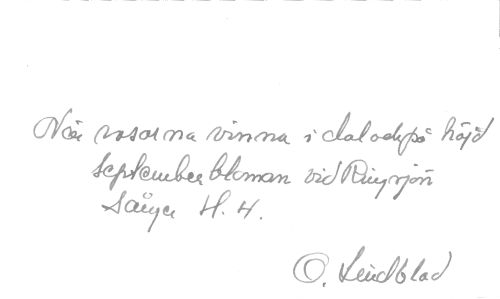 När rosorna vinna i dal och på höjd
septemberbloman vid Ringsjön
Säger H. H.
O. Lindblad